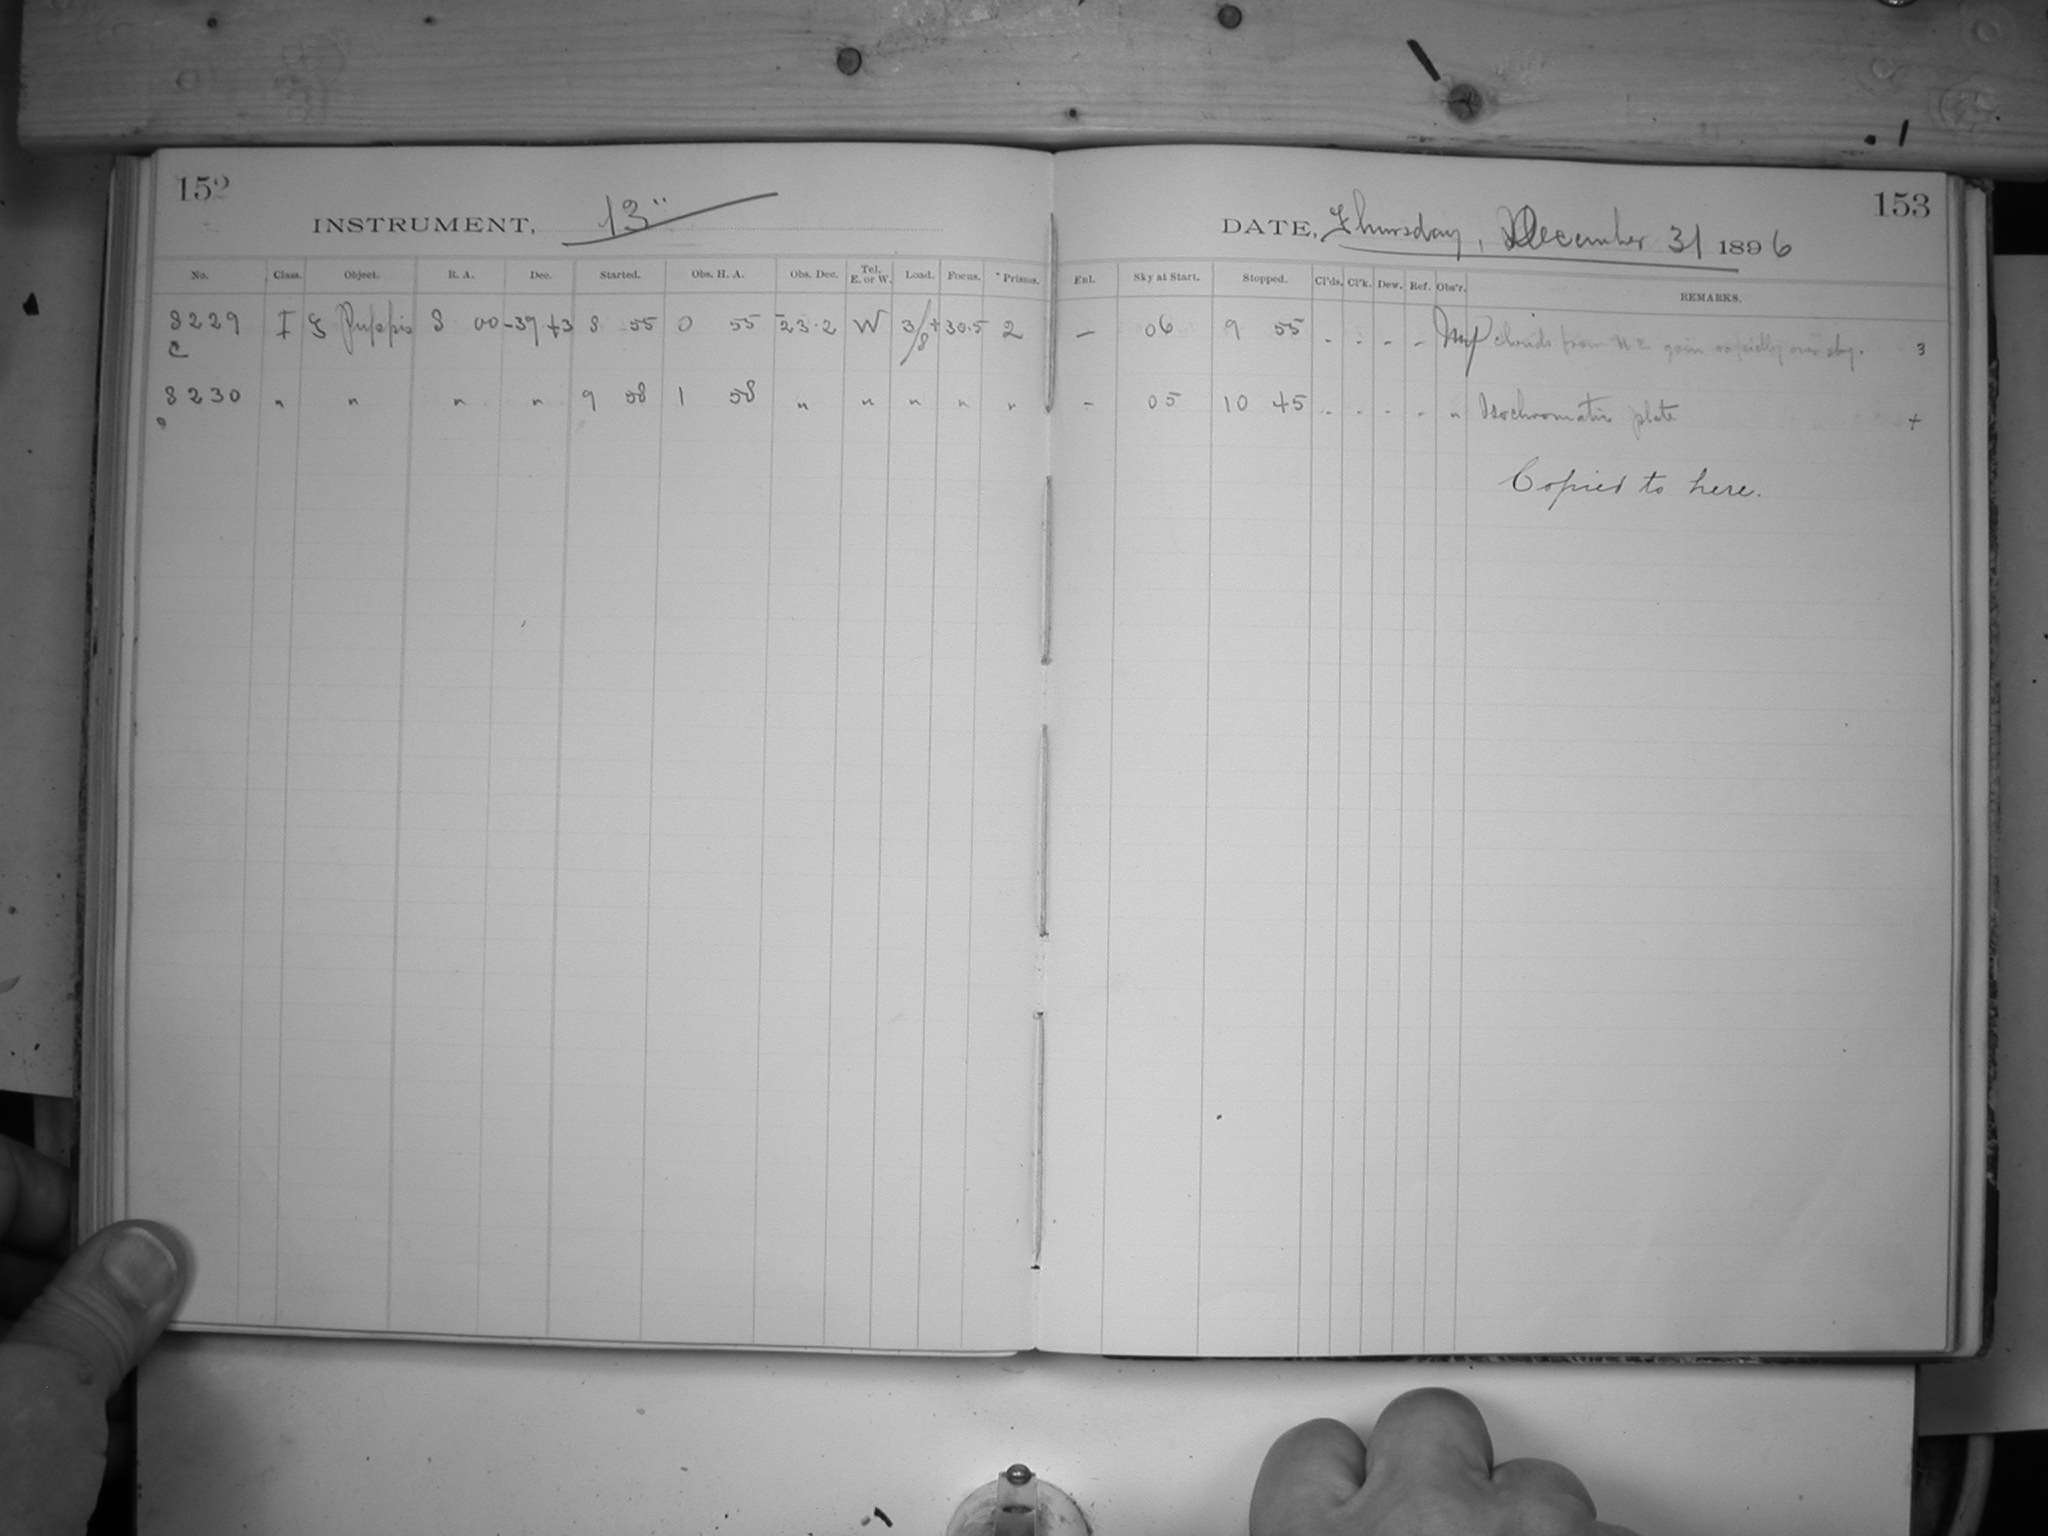 152
INSTRUMENT, 13"
No. Class. Object. R. A. Dec. Started. Obs. H. A. Obs. Dec. Tel. E. or W. Load. Focus. Prisms.
8229 I ζ Puppis 8 00 -39 43 8 55 0 55 -23.2 W 3/8 +30.5 2
C
8230 " " " " 9 58 1 58 " " " " "
153
DATE, Thursday, December 31 1896
Enl. Sky at Start. Stopped. Cl'ds. Cl'k. Dew. Ref. Obs'r. REMARKS.
— 06 9 55 - - - - clouds from N E going rapidly over sky. 3
- 05 10 45 - - - - " Isochromatic plate 4
Copied to here.